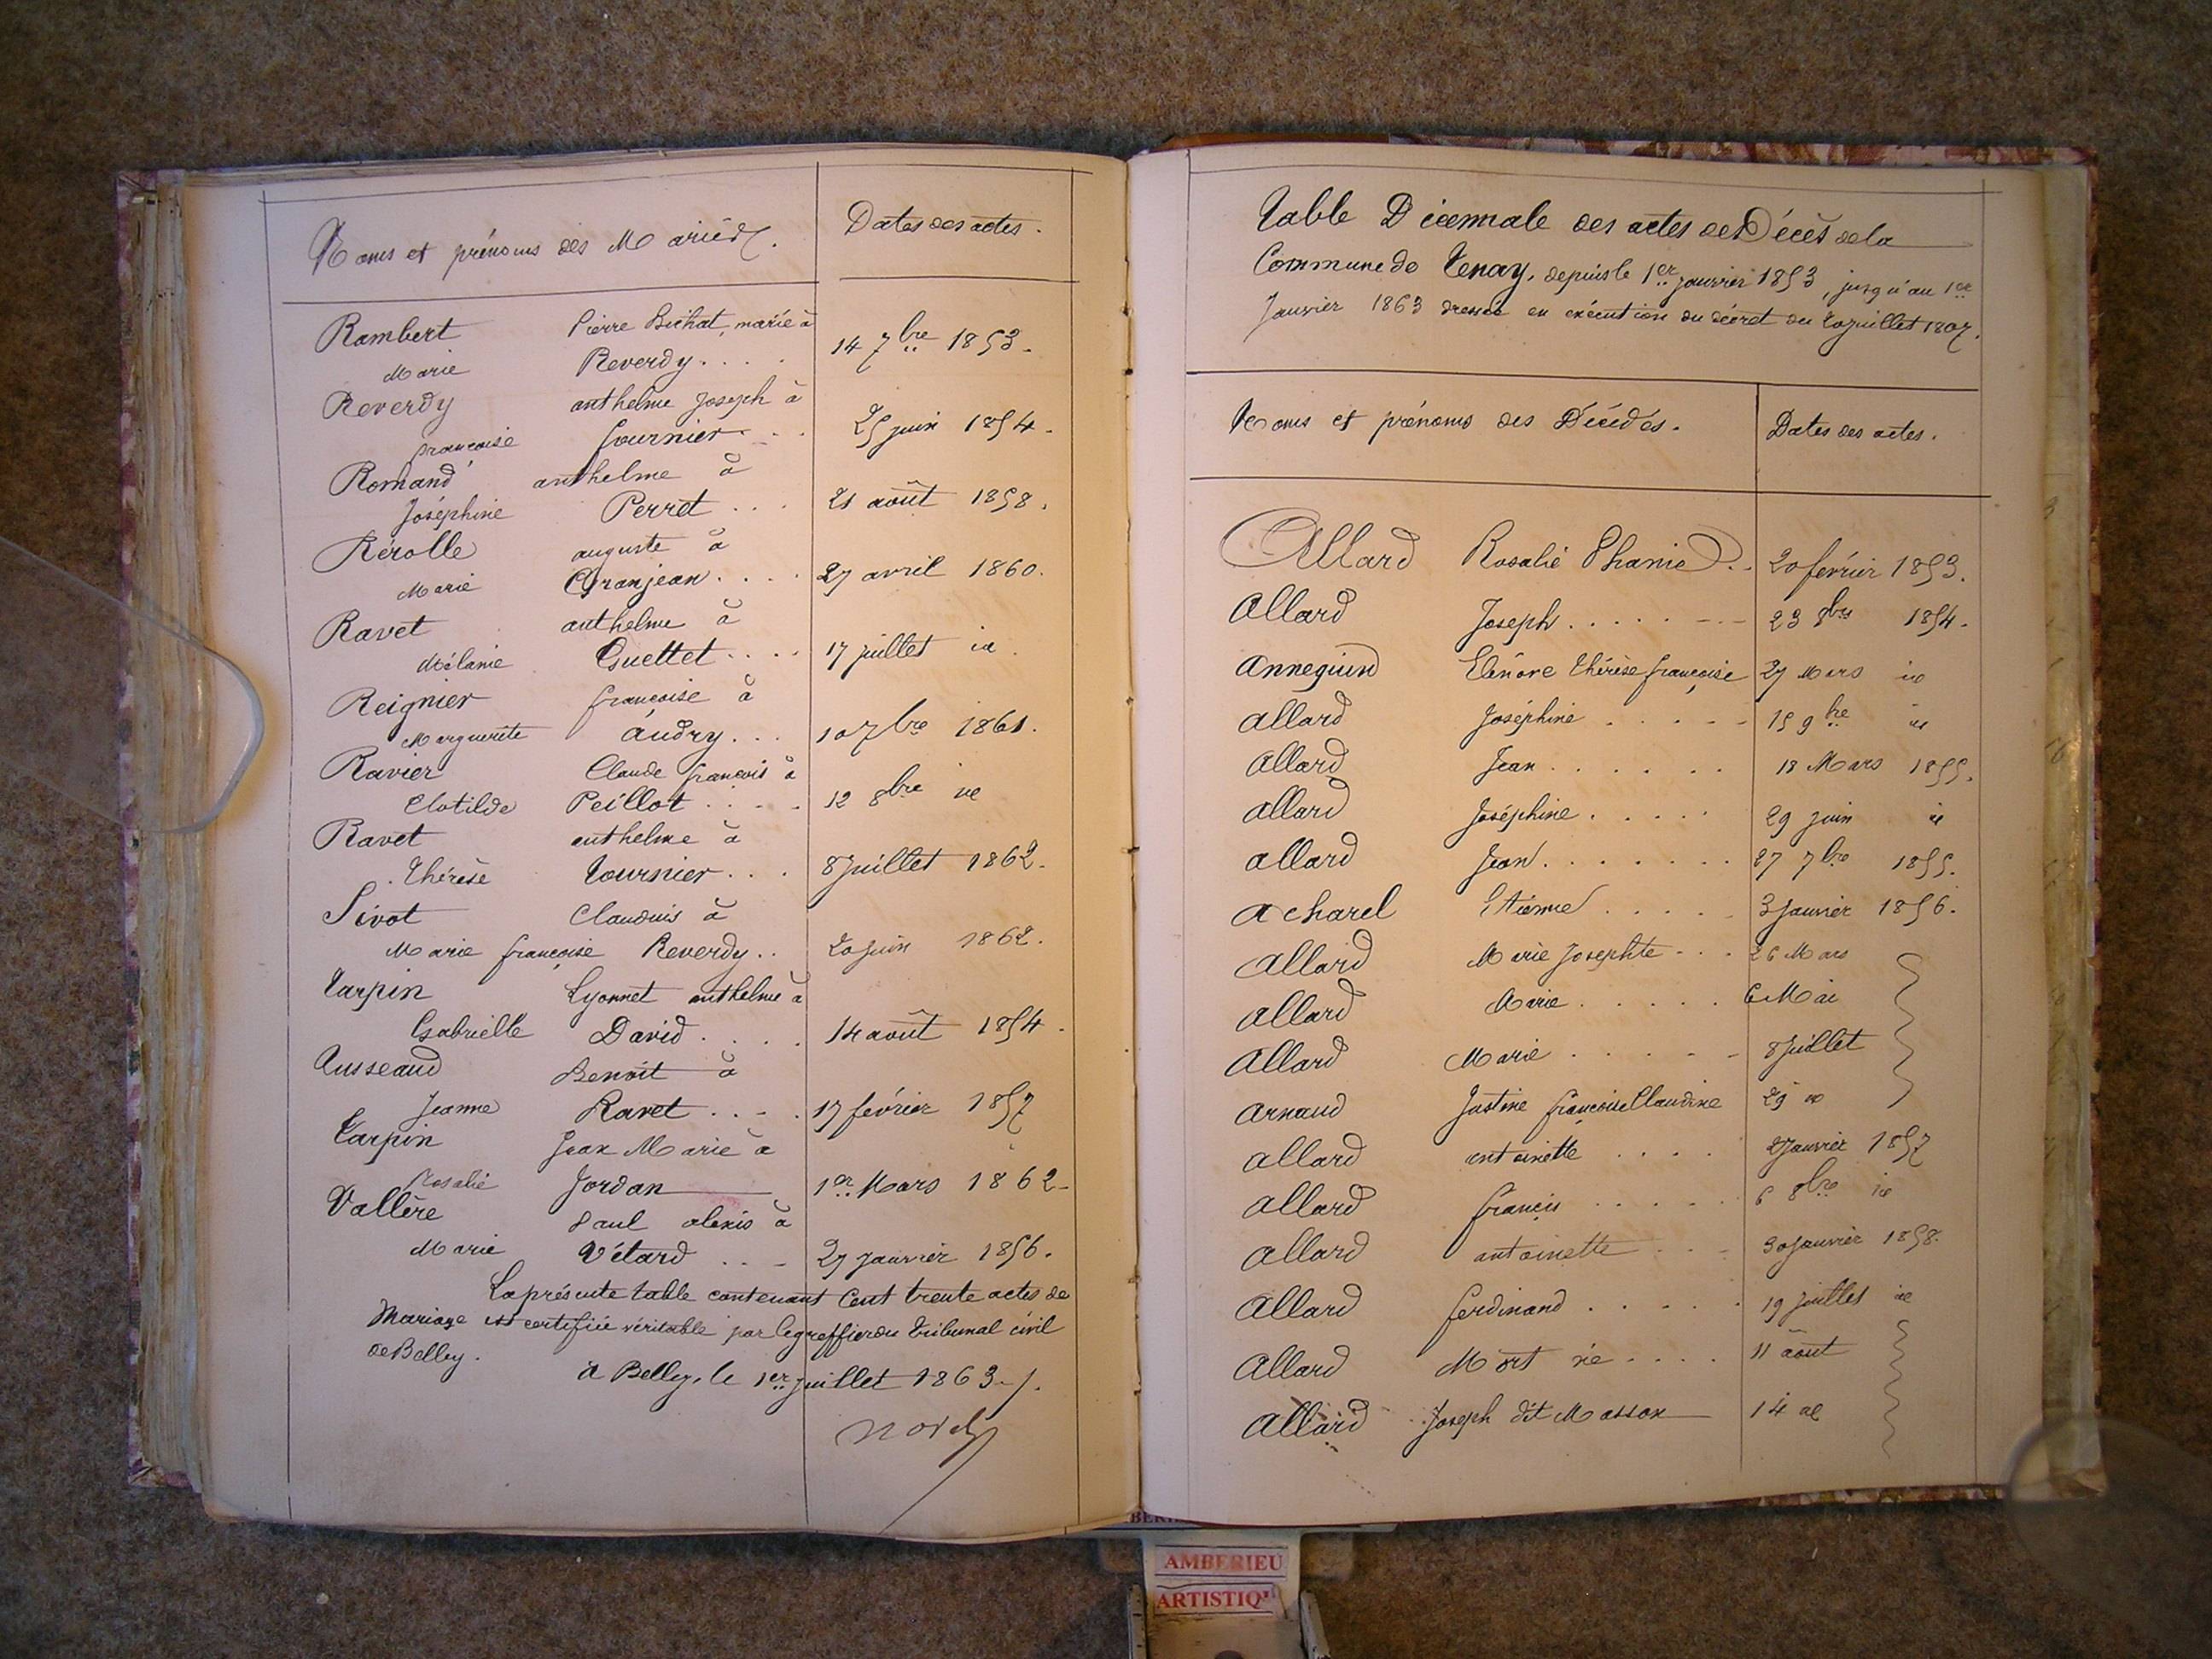 Noms et prénoms des Mariés.
Dates des actes.
Rambert Pierre Bichat, marié à
Marie Reverdy.... 14 7bre 1853.
Reverdy anthelme Joseph à
françoise fournier... 25 juin 1854.
Romand anthelme à
Joséphine Perret... 21 août 1858.
Rérolle auguste à
Marie Granjean.... 27 avril 1860.
Ravet anthelme à
Mélanie Guettet.... 17 juillet id.
Reignier françoise à
Marguerite Audry... 10 7bre 1861.
Ravier Claude françois à
Clotilde Peillot.... 12 8bre id
Ravet anthelme à
Thérèse Tournier... 8 Juillet 1862.
Sivot Claudius à
Marie françoise Reverdy.. 20 Juin 1862.
Tarpin Lyonnet anthelme à
Gabrielle David.... 14 août 1854.
Tusseaud Benoit à
Jeanne Ravet.... 17 février 1857
Tarpin Jean Marie à
Rosalie Jordan 1er Mars 1862
Vallère Paul alexis à
Marie Vétard ... 27 Janvier 1856.
La présente table contenant Cent trente actes de
Mariage est certifiée véritable par le greffier du Tribunal civil
de Belley.
à Belley, le 1er juillet 1863./.
Table Décennale des actes de Décès de la
Commune de Tenay, depuis le 1er janvier 1853, jusqu'au 1er
Janvier 1863 dressée en exécution du décret du 20 juillet 1807.
Noms et prénoms des Décédés. Dates des actes.
Allard Rosalie Phanie.. 20 février 1853.
Allard Joseph........ 23 8bre 1854.
Annequin Elénore Thérèse françoise 27 Mars id
Allard Joséphine..... 15 9bre id
Allard Jean...... 18 Mars 1855.
Allard Joséphine..... 29 juin id
Allard Jean....... 27 7bre 1855.
Acharel Etienne..... 3 Janvier 1856.
Allard Marie Josephte... 26 Mars
Allard Marie..... 6 Mai
Allard Marie..... 8 Juillet
Arnaud Justine françoise Claudine 29 id
Allard antoinette.... 2 Janvier 1857
Allard françis..... 6 8bre id
Allard antoinette... 30 Janvier 1858.
Allard ferdinand..... 19 juillet id
Allard Mort né.... 11 août
Allard Joseph dit Masson 14 id
AMBERIEU
ARTISTIQ